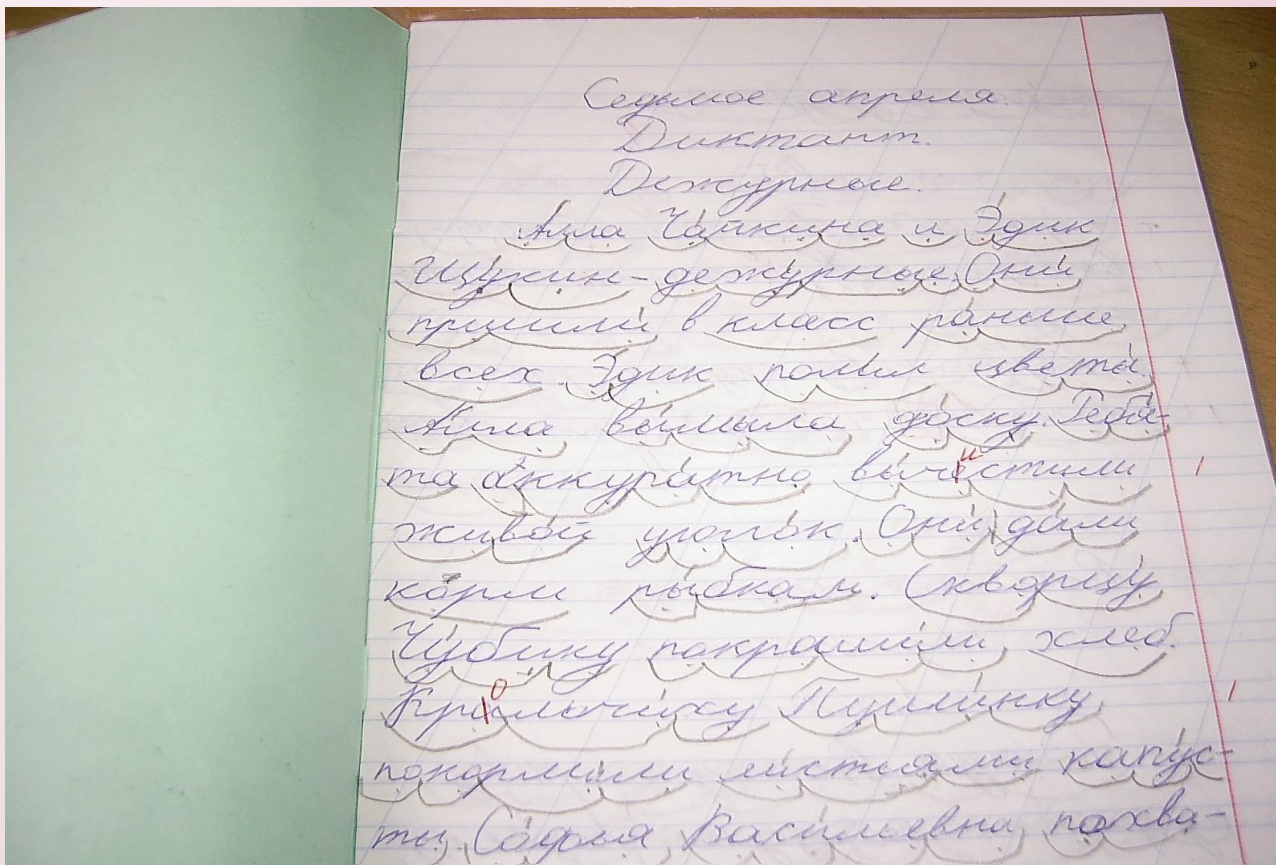 Седьмое апреля.
Диктант.
Дежурные.
Алла Чайкина и Эдик
Щукин - дежурные. Они
пришли в класс раньше
всех. Эдик полил цветы.
Алла вымыла доску. Ребя-
та аккуратно вычистили
живой уголок. Они дали
корм рыбкам. Скворцу
Чубику покрошили хлеб.
Крольчиху Пушинку
покормили листьями капус-
ты. Софья Васильевна похва-